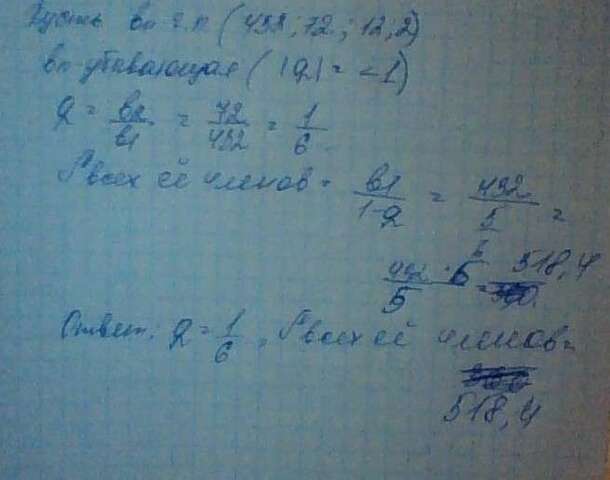 Пусть bn г.п (432; 72; 12; 2)
bn убывающая (|q| = <1)
q = b2/b1 = 72/432 = 1/6
S всех её членов = b1/1-q = 432/5/6 =
432·6/5 = 518,4
Ответ: q = 1/6, S всех её членов =
518,4